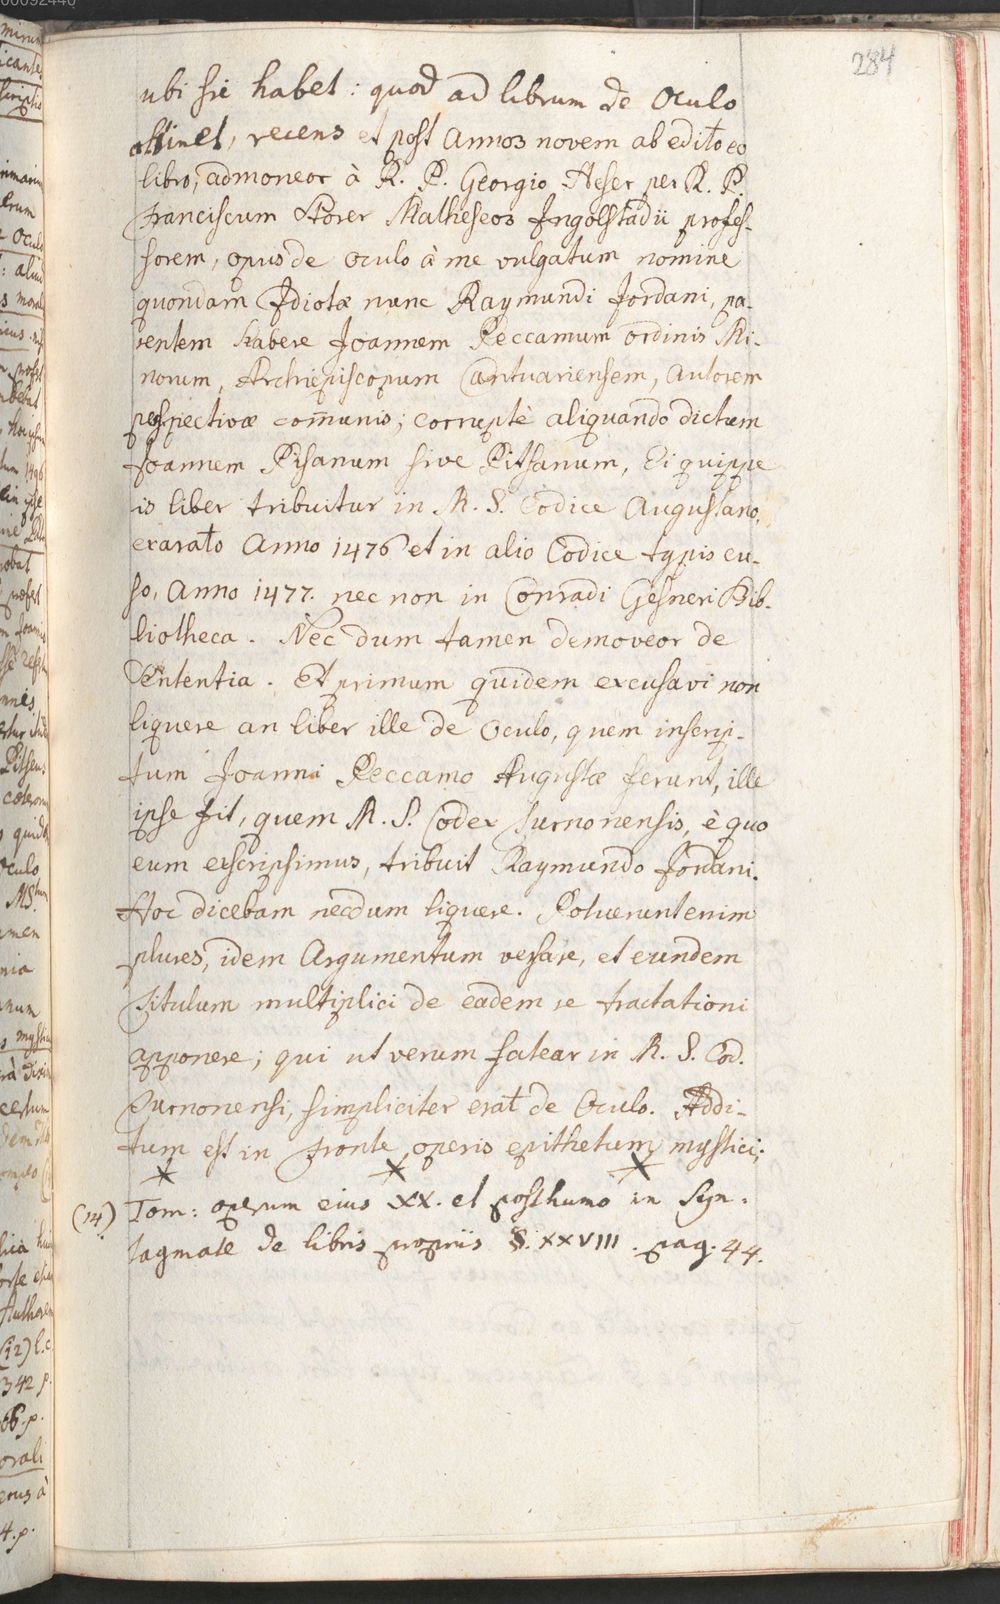 284
ubi sic habet: quod ad librum de Oculo
attinet, recens et post Annos novem ab edito eo
libro, admoneor à R. P. Georgio Heser per R. P.
Franciscum Storer Matheseos Ingolstadii profes-
sorem, opus de oculo à me vulgatum nomine
quondam Idiotæ nunc Raymundi Jordani, pa-
rentem habere Joannem Peccamum ordinis Mi-
norum, Archiepiscopum Cantuariensem, Autorem
perspectivæ com̄unis; corruptè aliquando dictum
Joannem Pisanum sive Pitsanum, Ei quippe
is liber tribuitur in M. S. Codice Augustano,
exarato Anno 1476 et in alio Codice typis cu-
so, Anno 1477. nec non in Conradi Gesneri Bib-
liotheca. Nec dum tamen demoveor de
Sententia. Et primum quidem excusavi non
liquere an liber ille de Oculo, quem inscrip-
tum Joanni Peccamo Augustæ ferunt, ille
ipse sit, quem M. S. Codex Surnonensis, è quo
eum exscripsimus, tribuit Raymundo Jordani.
Hoc dicebam necdum liquere. Potuerunt enim
plures, idem Argumentum versare, et eundem
Titulum multiplici de eadem re tractationi
apponere; qui ut verum fatear in M. S. Cod.
Surnonensi, simpliciter erat de Oculo. Addi-
tum est in fronte operis epithetum mystici;
(14) Tom: operum eius XX. et posthumo in Syn-
tagmate de libris propriis §. XXVIII. pag. 44.